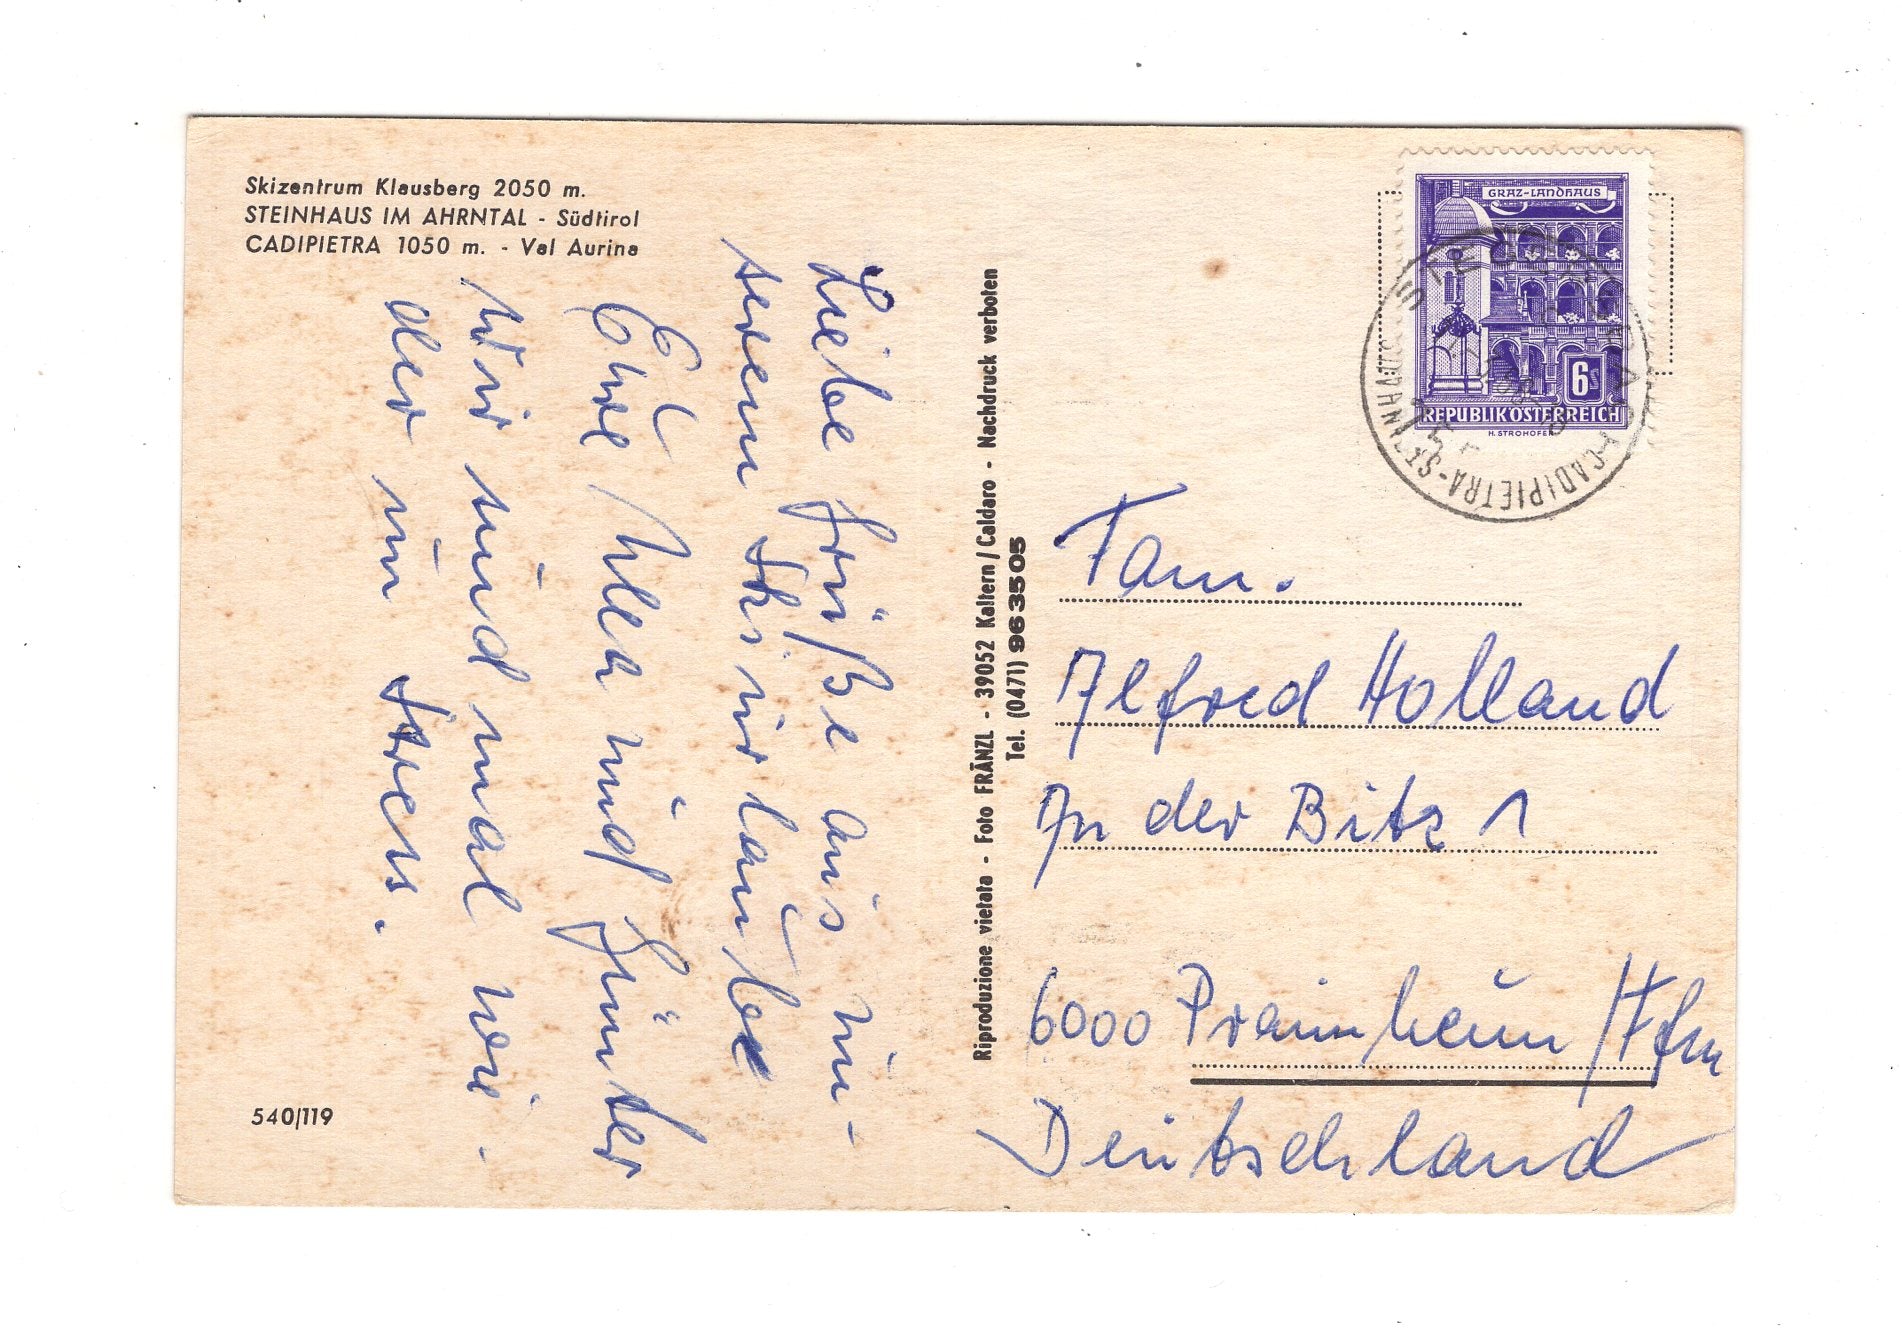 Skizentrum Klausberg 2050 m.
STEINHAUS IM AHRNTAL - Südtirol
CADIPIETRA 1050 m. - Val Aurina
Liebe Grüße aus un-
serem Skiurlaub
Eure Ulla und Günter
Wir sind mal wie-
der im Stress.
540/119
Riproduzione vietata - Foto FRÄNZL - 39052 Kaltern / Caldaro - Nachdruck verboten
Tel. (0471) 963505
GRAZ-LANDHAUS
6s
REPUBLIK ÖSTERREICH
H. STROHOFER
CADIPIETRA-
Fam.
Alfred Holland
In der Bitz 1
6000 Praunheim/Ffm
Deutschland